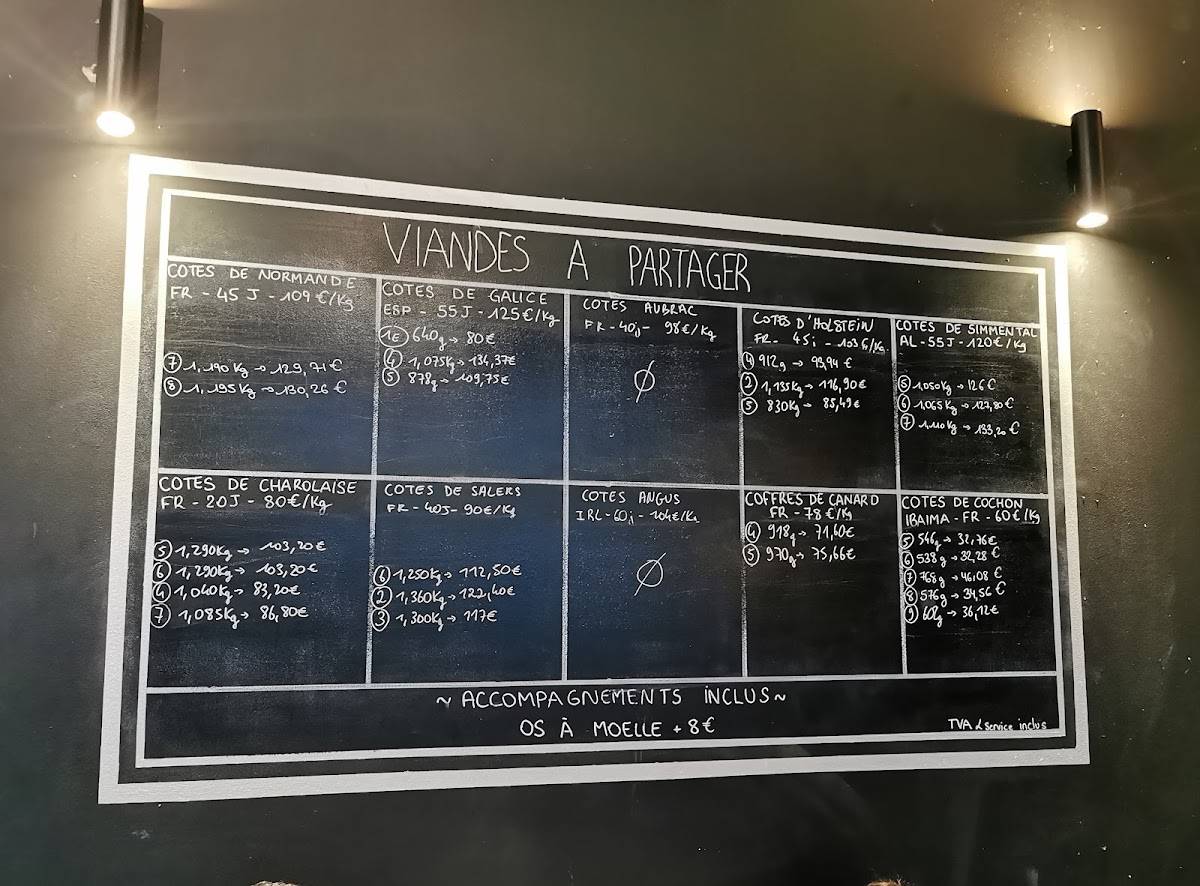 VIANDES A PARTAGER
COTES DE NORMANDE
FR - 45 J - 109 €/Kg
⑦ 1,190 Kg → 129,71 €
⑧ 1,195 Kg → 130,26 €
COTES DE GALICE
ESP - 55J - 125€/Kg
640g → 80€
④ 1,075Kg → 134,37€
⑤ 878g → 109,75€
COTES AUBRAC
FR - 40j - 98€/Kg
Ø
COTES D'HOLSTEIN
FR - 45j - 103€/Kg
④ 912g → 93,94 €
② 1,135Kg → 116,90€
⑤ 830Kg → 85,49€
COTES DE SIMMENTAL
AL - 55J - 120€/Kg
⑤ 1,050Kg → 126€
⑥ 1,065Kg → 127,80€
⑦ 1,110Kg → 133,20€
COTES DE CHAROLAISE
FR - 20J - 80€/Kg
⑤ 1,290Kg → 103,20€
⑥ 1,290Kg → 103,20€
④ 1,040Kg → 83,20€
⑦ 1,085Kg → 86,80€
COTES DE SALERS
FR - 40J - 90€/Kg
⑥ 1,250Kg → 112,50€
② 1,360Kg → 122,40€
③ 1,300Kg → 117€
COTES ANGUS
IRL - 60j - 104€/Kg
Ø
COFFRES DE CANARD
FR - 78 €/Kg
④ 918g → 71,60€
⑤ 970g → 75,66€
COTES DE COCHON
IBAIMA - FR - 60€/Kg
⑤ 546g → 32,76€
⑥ 538g → 32,28 €
⑦ 768g → 46,08 €
⑧ 576g → 34,56 €
⑨ 602g → 36,12€
~ ACCOMPAGNEMENTS INCLUS ~
OS À MOELLE + 8€
TVA & Service inclus